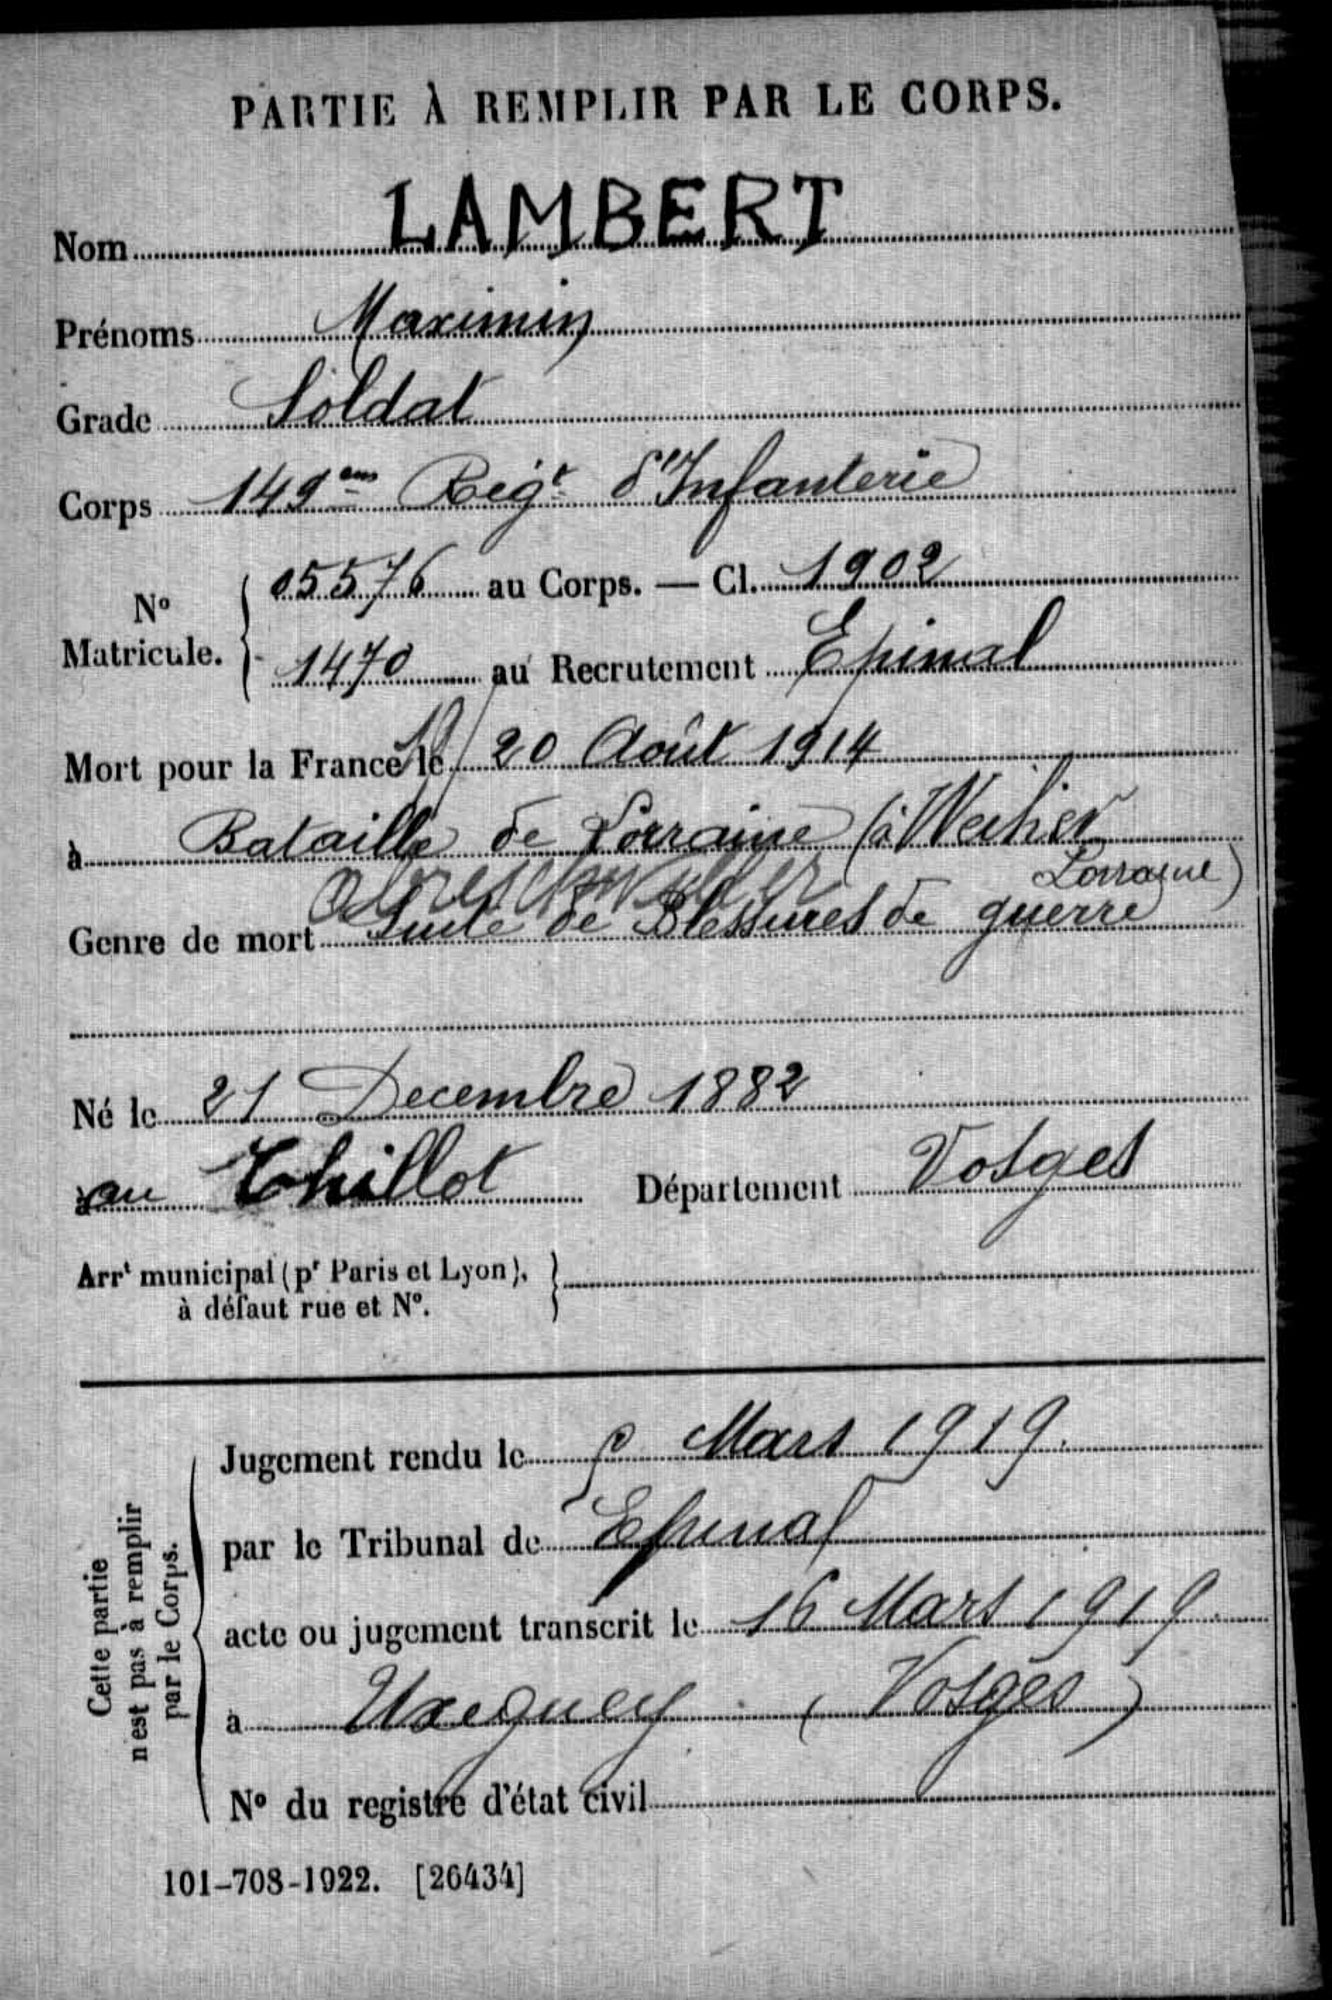 PARTIE À REMPLIR PAR LE CORPS.
Nom LAMBERT
Prénoms Maximin
Grade Soldat
Corps 149eme Régt d'Infanterie
No Matricule. 05576 au Corps. — Cl. 1902
1470 au Recrutement Epinal
Mort pour la France le 20 Août 1914
à Bataille de Lorraine (à
Lorraine)
Genre de mort Suite de Blessures de guerre
Né le 21 Decembre 1882
au Thillot Département Vosges
Arrt municipal (pr Paris et Lyon),
à défaut rue et No.
Cette partie
n'est pas à remplir
par le Corps.
Jugement rendu le Mars 1919.
par le Tribunal de Epinal
acte ou jugement transcrit le 16 Mars 1919.
à Uxegney (Vosges)
No du registre d'état civil
101-708-1922. [26434]